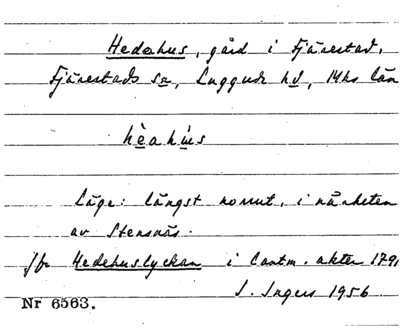 Hedehus, gård i Fjärestad,
Fjärestads sn, Luggude hd, Mhs län
hèahús
Läge: längst norrut, i närheten
av Stensnäs.
Jfr Hedehuslyckan i lantm. akter 1791
I. Ingers 1956
Nr 6563.